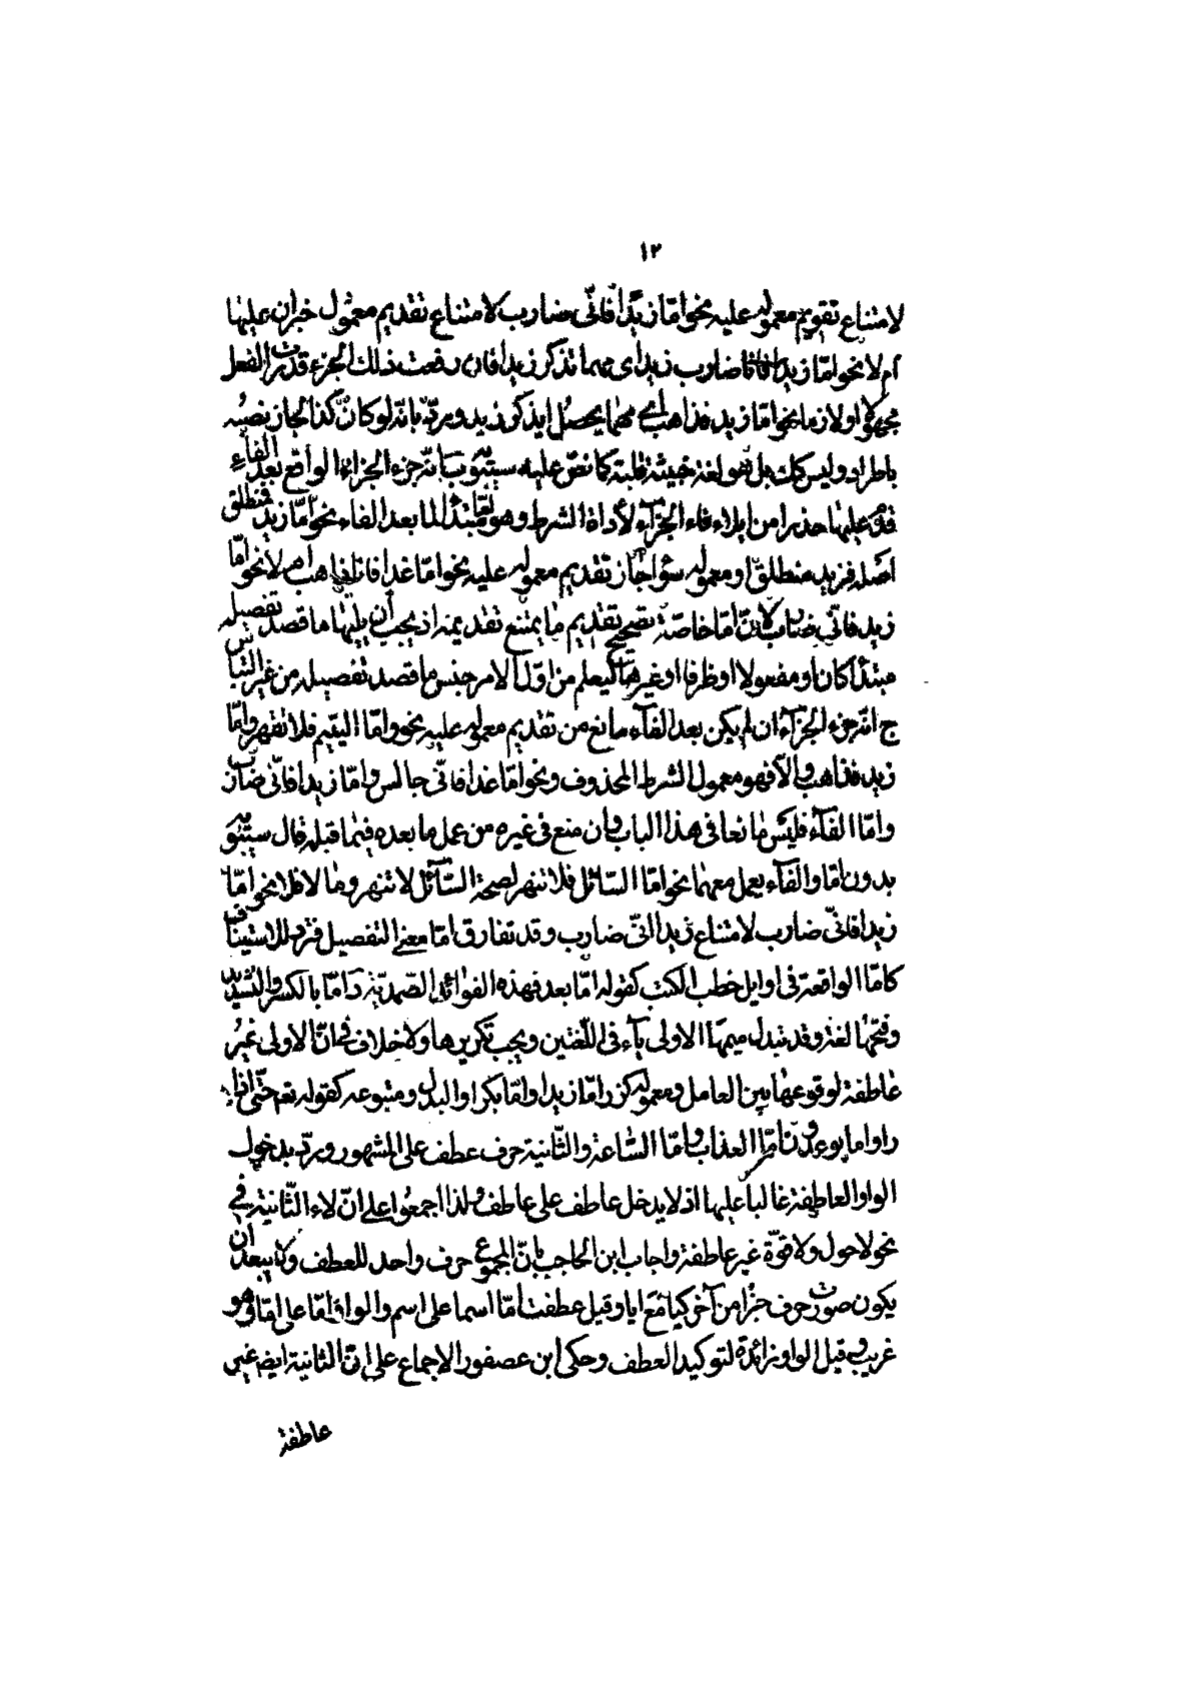 ١٢
لامتناع تقويم معموله عليه نحو امّا زيدًا فانّى ضارب لامتناع تقديم معمول خبر ان عليها
ام لا نحو امّا زيدا فانا ضارب زيدا اى مهما تذكر زيدا فان رفعت ذلك الجزء قدّرت الفعل
مجهولا او لازما نحو امّا زيد فذاهب اى مهما يحصل او يذكر زيد ويردّ بانّه لو كان كذا لجاز نصبه
باطراد وليس كك بل هو لغة خبيثة قليلة كما نصّ عليه سيبَويه انّه جزء الجزاء الواقع بعد الفاء
قدّم عليها حذرا من ايلاء فاء الجزآء لأداة الشرط وهو امّا مبتدأ لما بعد الفاء نحو امّا زيد فمنطلق
اصله فزيد منطلق او معموله سوآء جاز تقديم معموله عليه نحو امّا غدا فانا ذاهب ام لا نحو امّا
زيد فانّى ضارب لانّ امّا خاصّة تصحيح تقديم ما يمتنع تقديمه اذ يجب أن يليها ما قصد تفصيله
مبتدأ كان او مفعولا او ظرفا او غيرها ليعلم من اوّل الامر جنس ما قصد تفصيله من غير التباس
ج انّه جزء الجزآء ان لم يكن بعد الفآء مانع من تقديم معموله عليه نحو وامّا اليتيم فلا تقهر وامّا
زيد فذاهب والّا فهو معمول الشرط المحذوف ونحو امّا غدا فانّى جالس وامّا زيدا فانّى ضارب
وامّا الفآء فليس مانعا فى هذا الباب وان منع فى غيره من عمل ما بعده فيما قبله قال سيبويه
بدون امّا والفآء يعمل معهما نحو امّا السّائل فلا تنهر لصحة السّآئل لا تنهر وما لا فلا نحو امّا
زيدا فانّى ضارب لامتناع زيدا انّى ضارب وقد تفارق امّا معنى التفصيل فترد للاستيناف
كامّا الواقعة فى اوايل خطب الكتب كقوله امّا بعد فهذه الفوائد الصّمديّة د امّا بالكسر والتشديد
وفتحها لغة وقد تبدل ميمها الاولى يآء فى اللّغتين ويجب تكريرها ولا خلاف فى انّ الاولى غير
عاطفة لوقوعها بين العامل ومعموله كزر امّا زيدا وامّا بكرا والبدل ومتبوعه كقوله تعم حتّى اذا
راوا ما يوعدون امّا العذاب وامّا السّاعة والثّانية حرف عطف على المشهور ويردّ بدخول
الواو العاطفة غالبا عليها اذ لا يدخل عاطف على عاطف ولذا اجمعوا على انّ لاء الثّانية فى
نحو لا حول ولا قوّة غير عاطفة واجاب ابن الحاجب بانّ المجموع حرف واحد للعطف ولا يبعد ان
يكون صورة حرف جزأ من آخر كيا مع ايا وقيل عطفت امّا اسما على اسم والواو امّا على امّا وهو
غريب وقيل الواو زائدة لتوكيد العطف وحكى ابن عصفور الاجماع على انّ الثانية ايضا غير
عاطفة